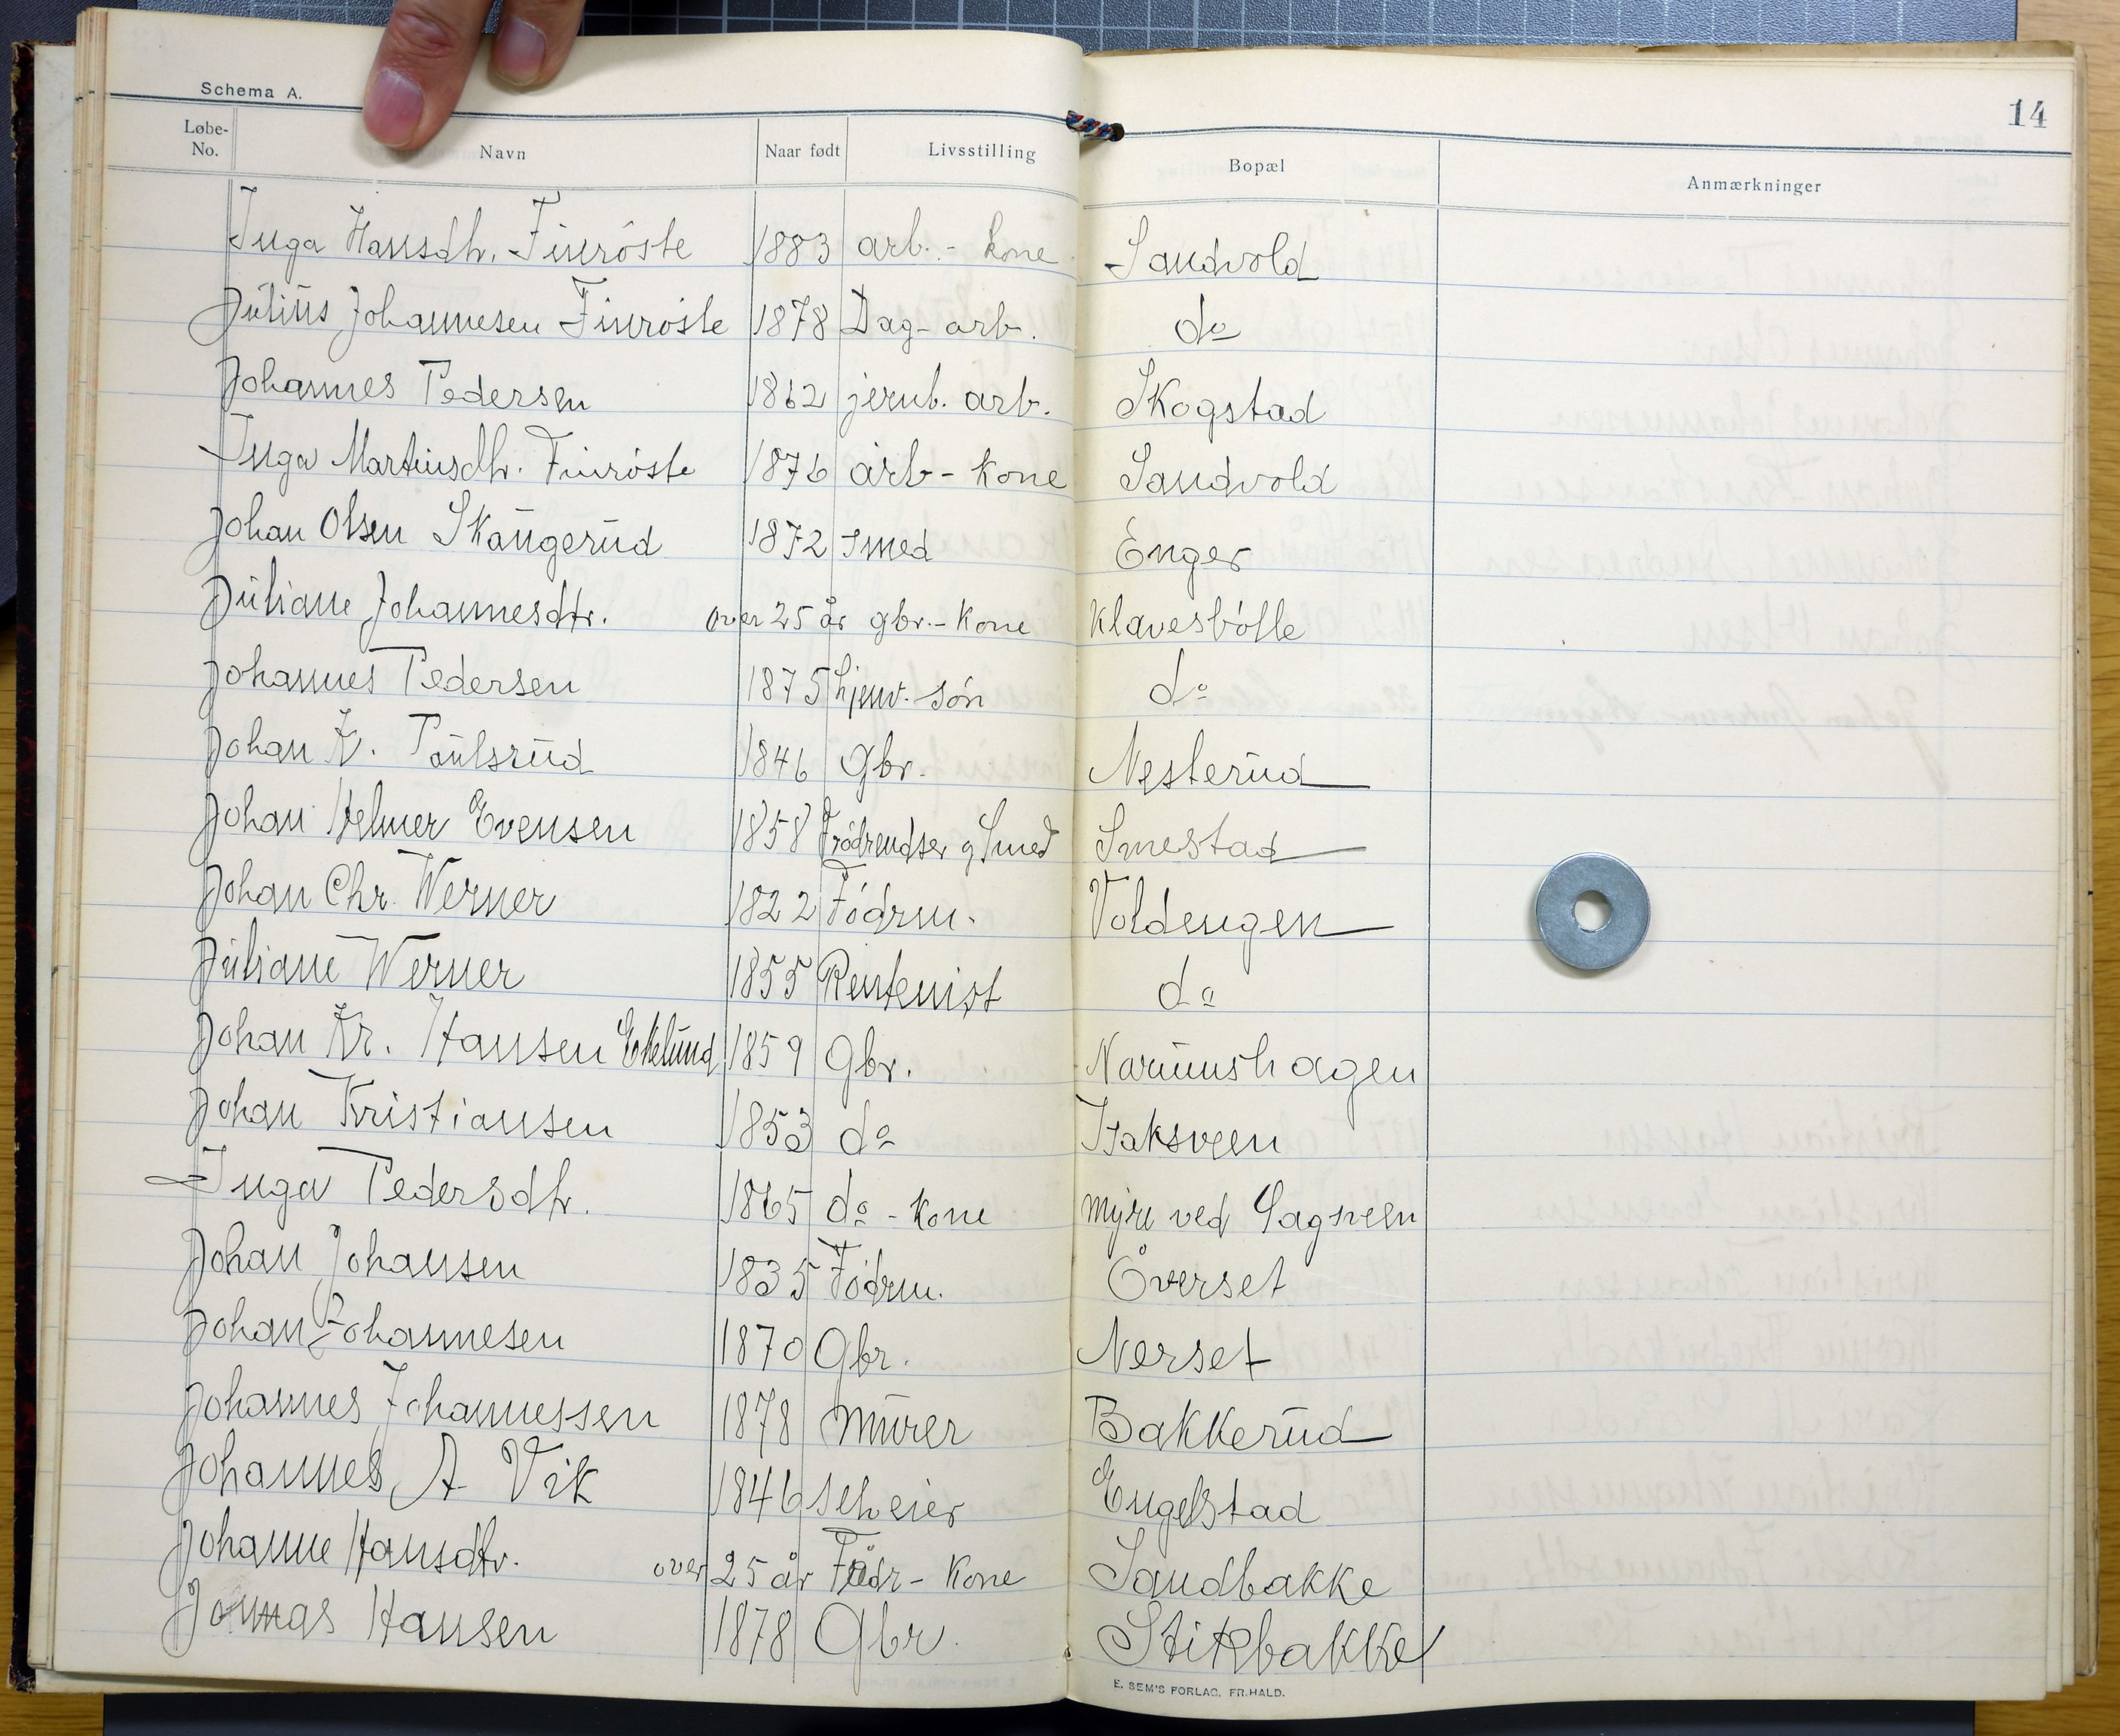 Schema A.
14
Løbe-No. Navn Naar født Livsstilling Bopæl Anmærkninger
Inga Hansdtr. Finröste 1883 arb.- kone Sandvold
Julius Johannesen Finröste 1878 Dag-arb. do
Johannes Pedersen 1862 jernb. arb. Skogstad
Inga Martinsdtr. Finröste 1876 arb-kone Sandvold
Johan Olsen Skaugerud 1872 smed Enger
Juliane Johannesdtr. over 25 år gbr.-kone Klavesbölle
Johannes Pedersen 1875 hjemv. sön do
Johan K. Paulsrud 1846 Gbr. Nesterud
Johan Helmer Evensen 1858 Smed Smestad
Johan Chr. Werner 1822 Födrm. Voldengen
Juliane Werner 1855 Rentenist do
Johan Kr. Hansen Eklund 1859 Gbr. Narumshagen
Johan Kristiansen 1853 do Isaksveen
Inga Pedersdtr. 1865 do - kone myre ved Sagveen
Johan Johansen 1835 Födrm. Överset
Johan Johannesen 1870 Gbr. Nerset
Johannes Johannessen 1878 Murer Bakkerud
Johannes A Vik 1846 selveier Engelstad
Johanne Hansdtr. over 25 år Födr-kone Sandbakke
Jonas Hansen 1878 Gbr. Stikbakke
E. SEM'S FORLAG, FR.HALD.